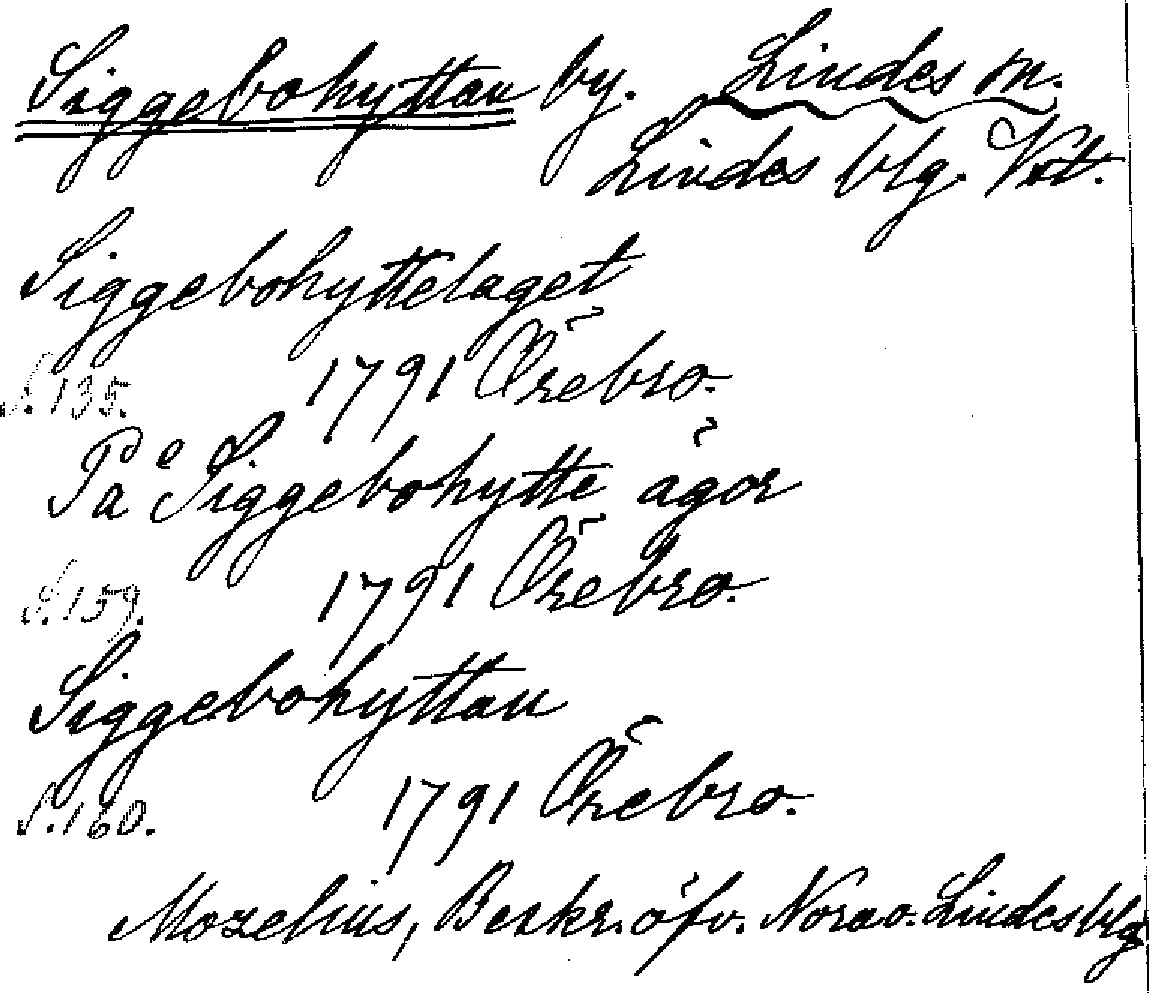 Siggebohyttan by. Lindes sn.
Lindes blg. Vstl.
Siggebohyttelaget
S. 135. 1791 Örebro.
På Siggebohytte ägor
S. 159. 1791 Örebro.
Siggebohyttan
S. 160. 1791 Örebro.
Mozelius, Beskr. öfv. Nora o. Lindes blg